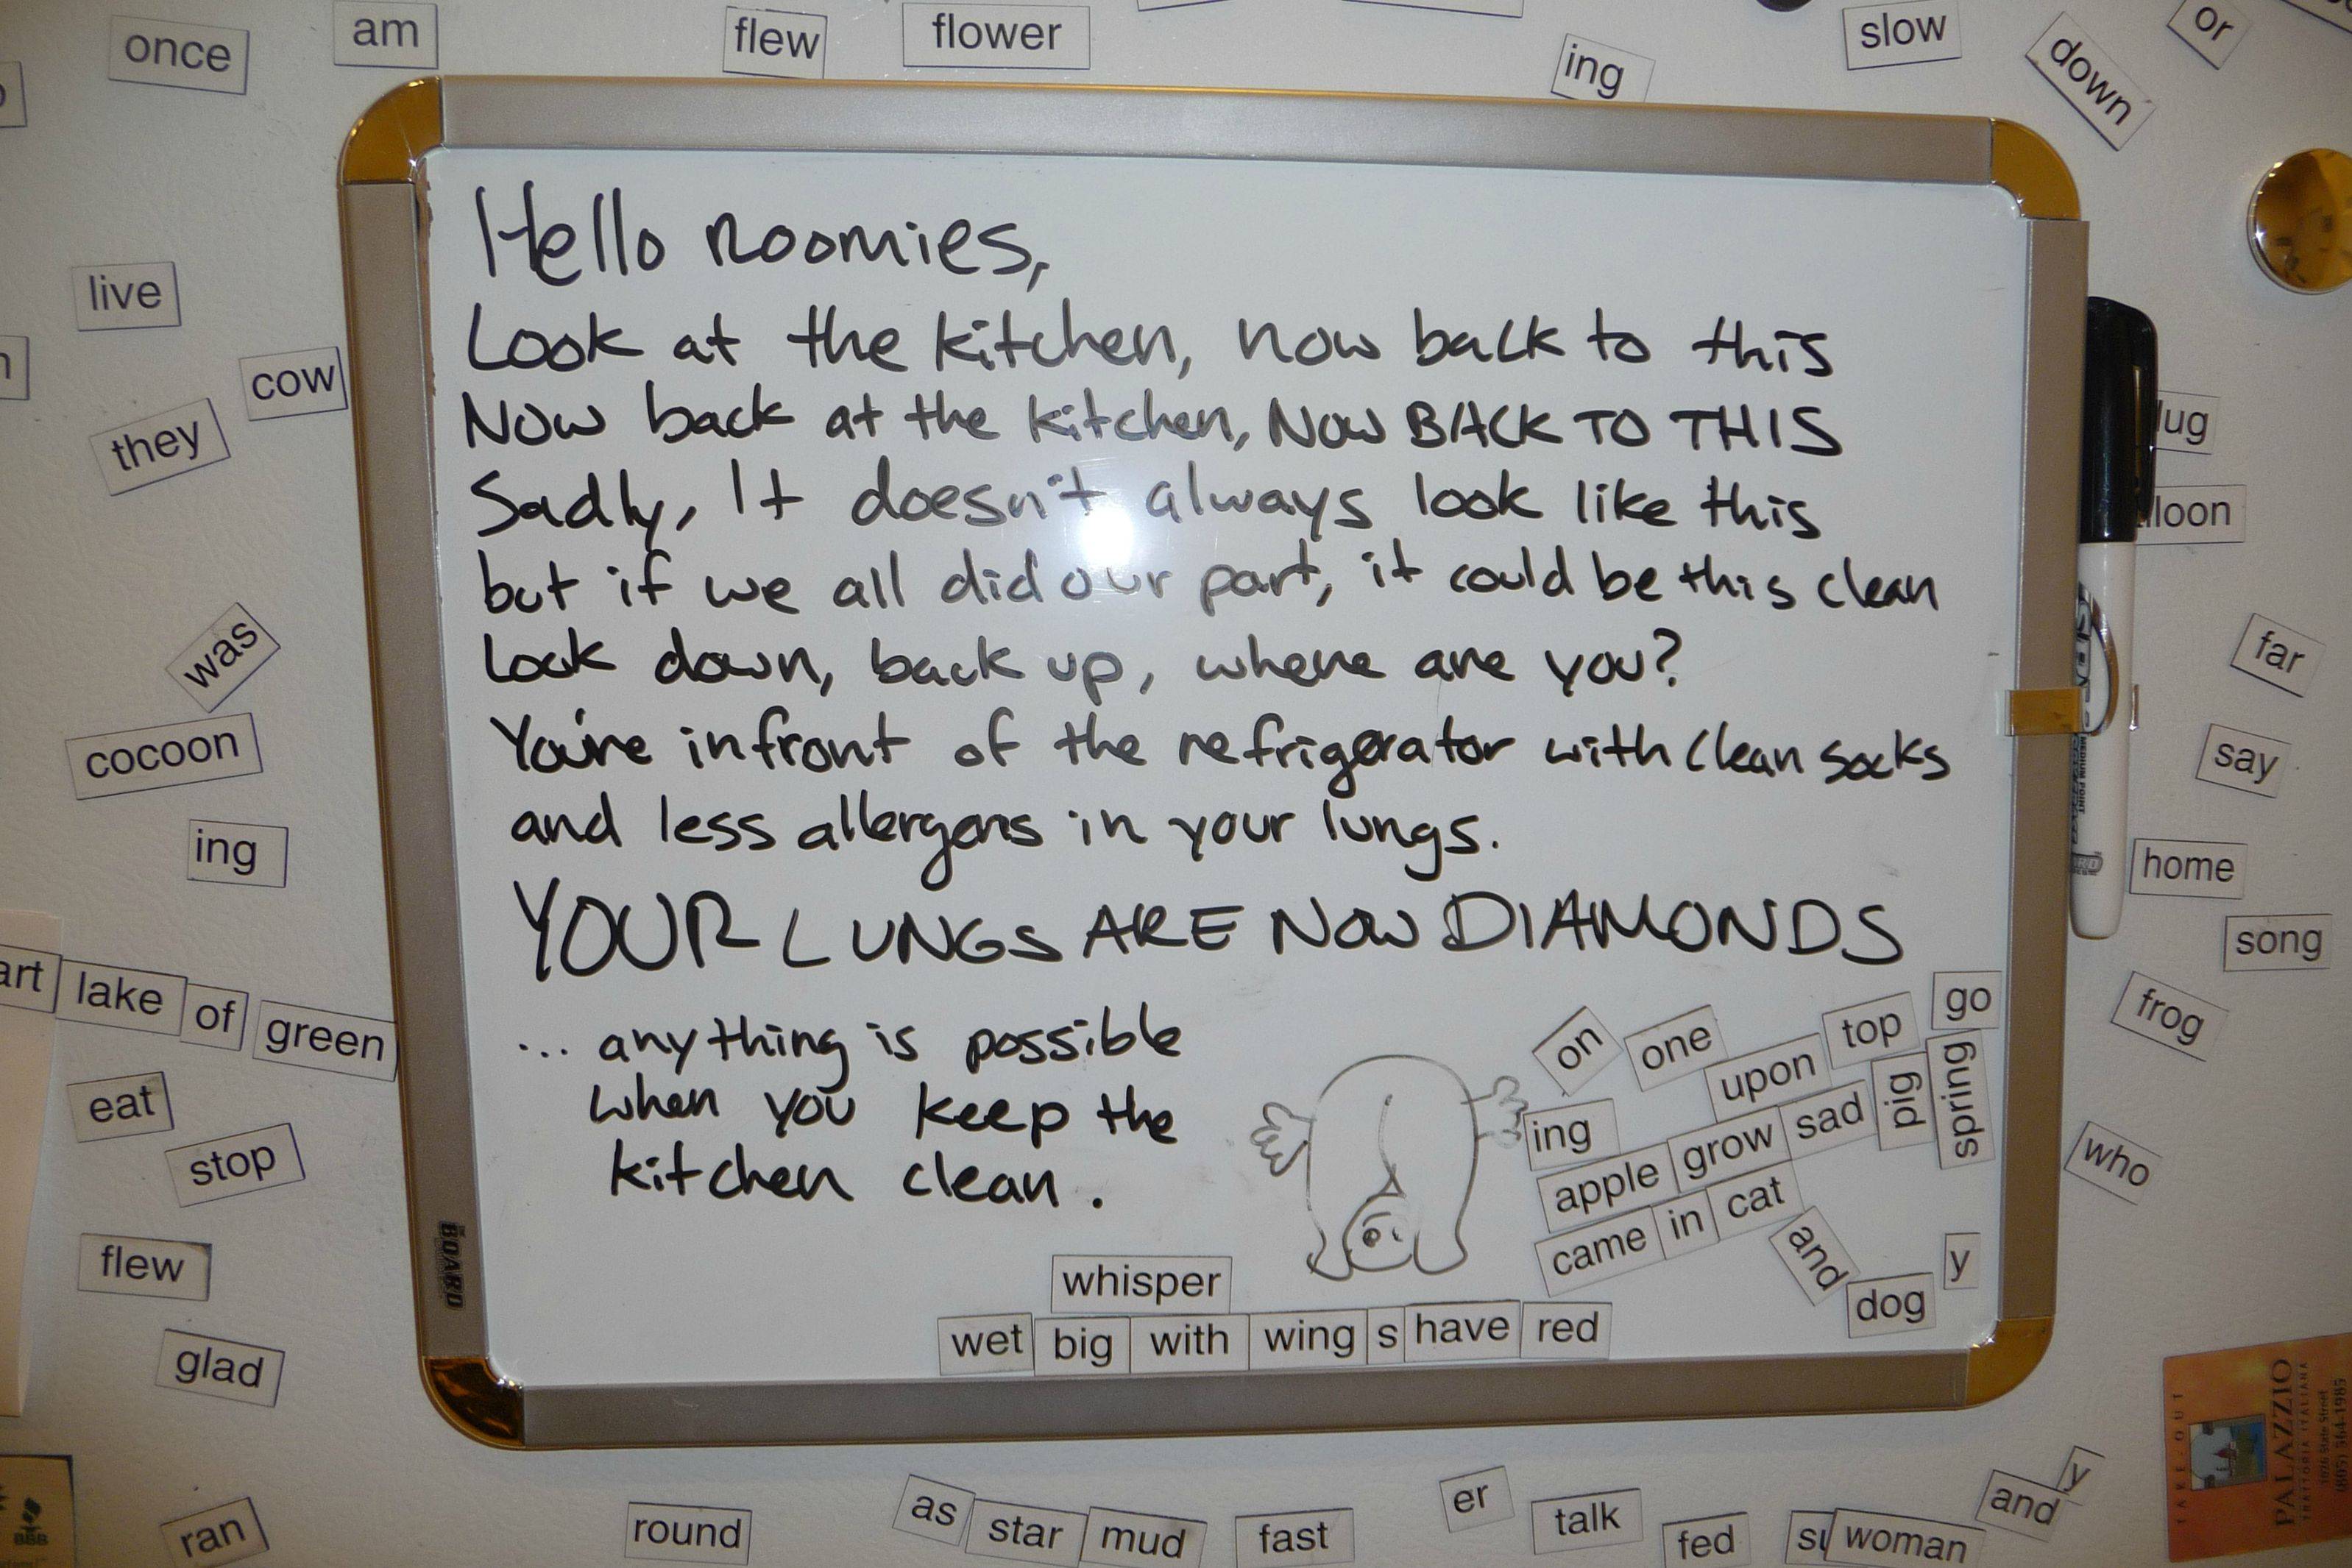 once
am
flew
flower
ing
slow
down
or
live
cow
they
was
cocoon
ing
art lake of green
eat
stop
flew
glad
ran
Hello Roomies,
Look at the kitchen, now back to this
Now back at the kitchen, NOW BACK TO THIS
Sadly, It doesn't always look like this
but if we all did our part, it could be this clean
Look down, back up, where are you?
You're infront of the refrigerator with clean socks
and less allergens in your lungs.
YOUR LUNGS ARE NOW DIAMONDS
... anything is possible
when you keep the
kitchen clean.
on one upon top go
ing
apple grow sad pig spring
came in cat
and
dog
y
whisper
wet big with wing s have red
THE BOARD
MEDIUM POINT
lug
loon
far
say
home
song
frog
who
round
as star mud
fast
er
talk
fed
su woman
and y
BBB
TAKE-OUT
PALAZZIO
TRATTORIA ITALIANA
1026 State Street
(805) 564-1985